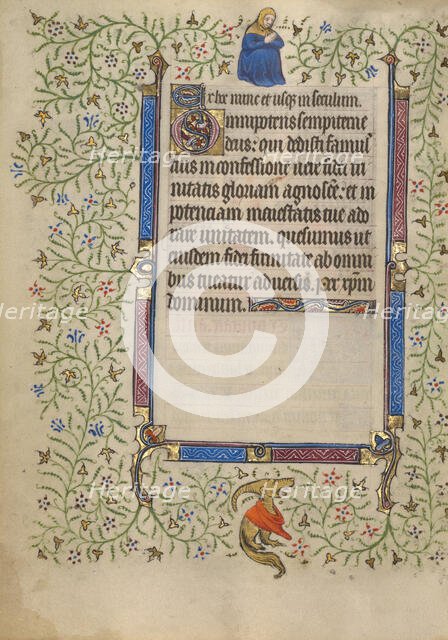 Ex hoc nunc et usq; in seculum.
Omnipotens sempiterne
deus: qui dedisti famul'
tuis in confessione vere fidei tri
nitatis gloriam agnosce': et in
potenciam maiestatis tue ado
rare unitatem. quesumus ut
eiusdem fidei firmitate ab omni
bus tueatur adversis. per xpm
dominum.
Heritage
Heritage
Heritage
Heritage
Heritage
Heritage
Heritage
Heritage
Heritage